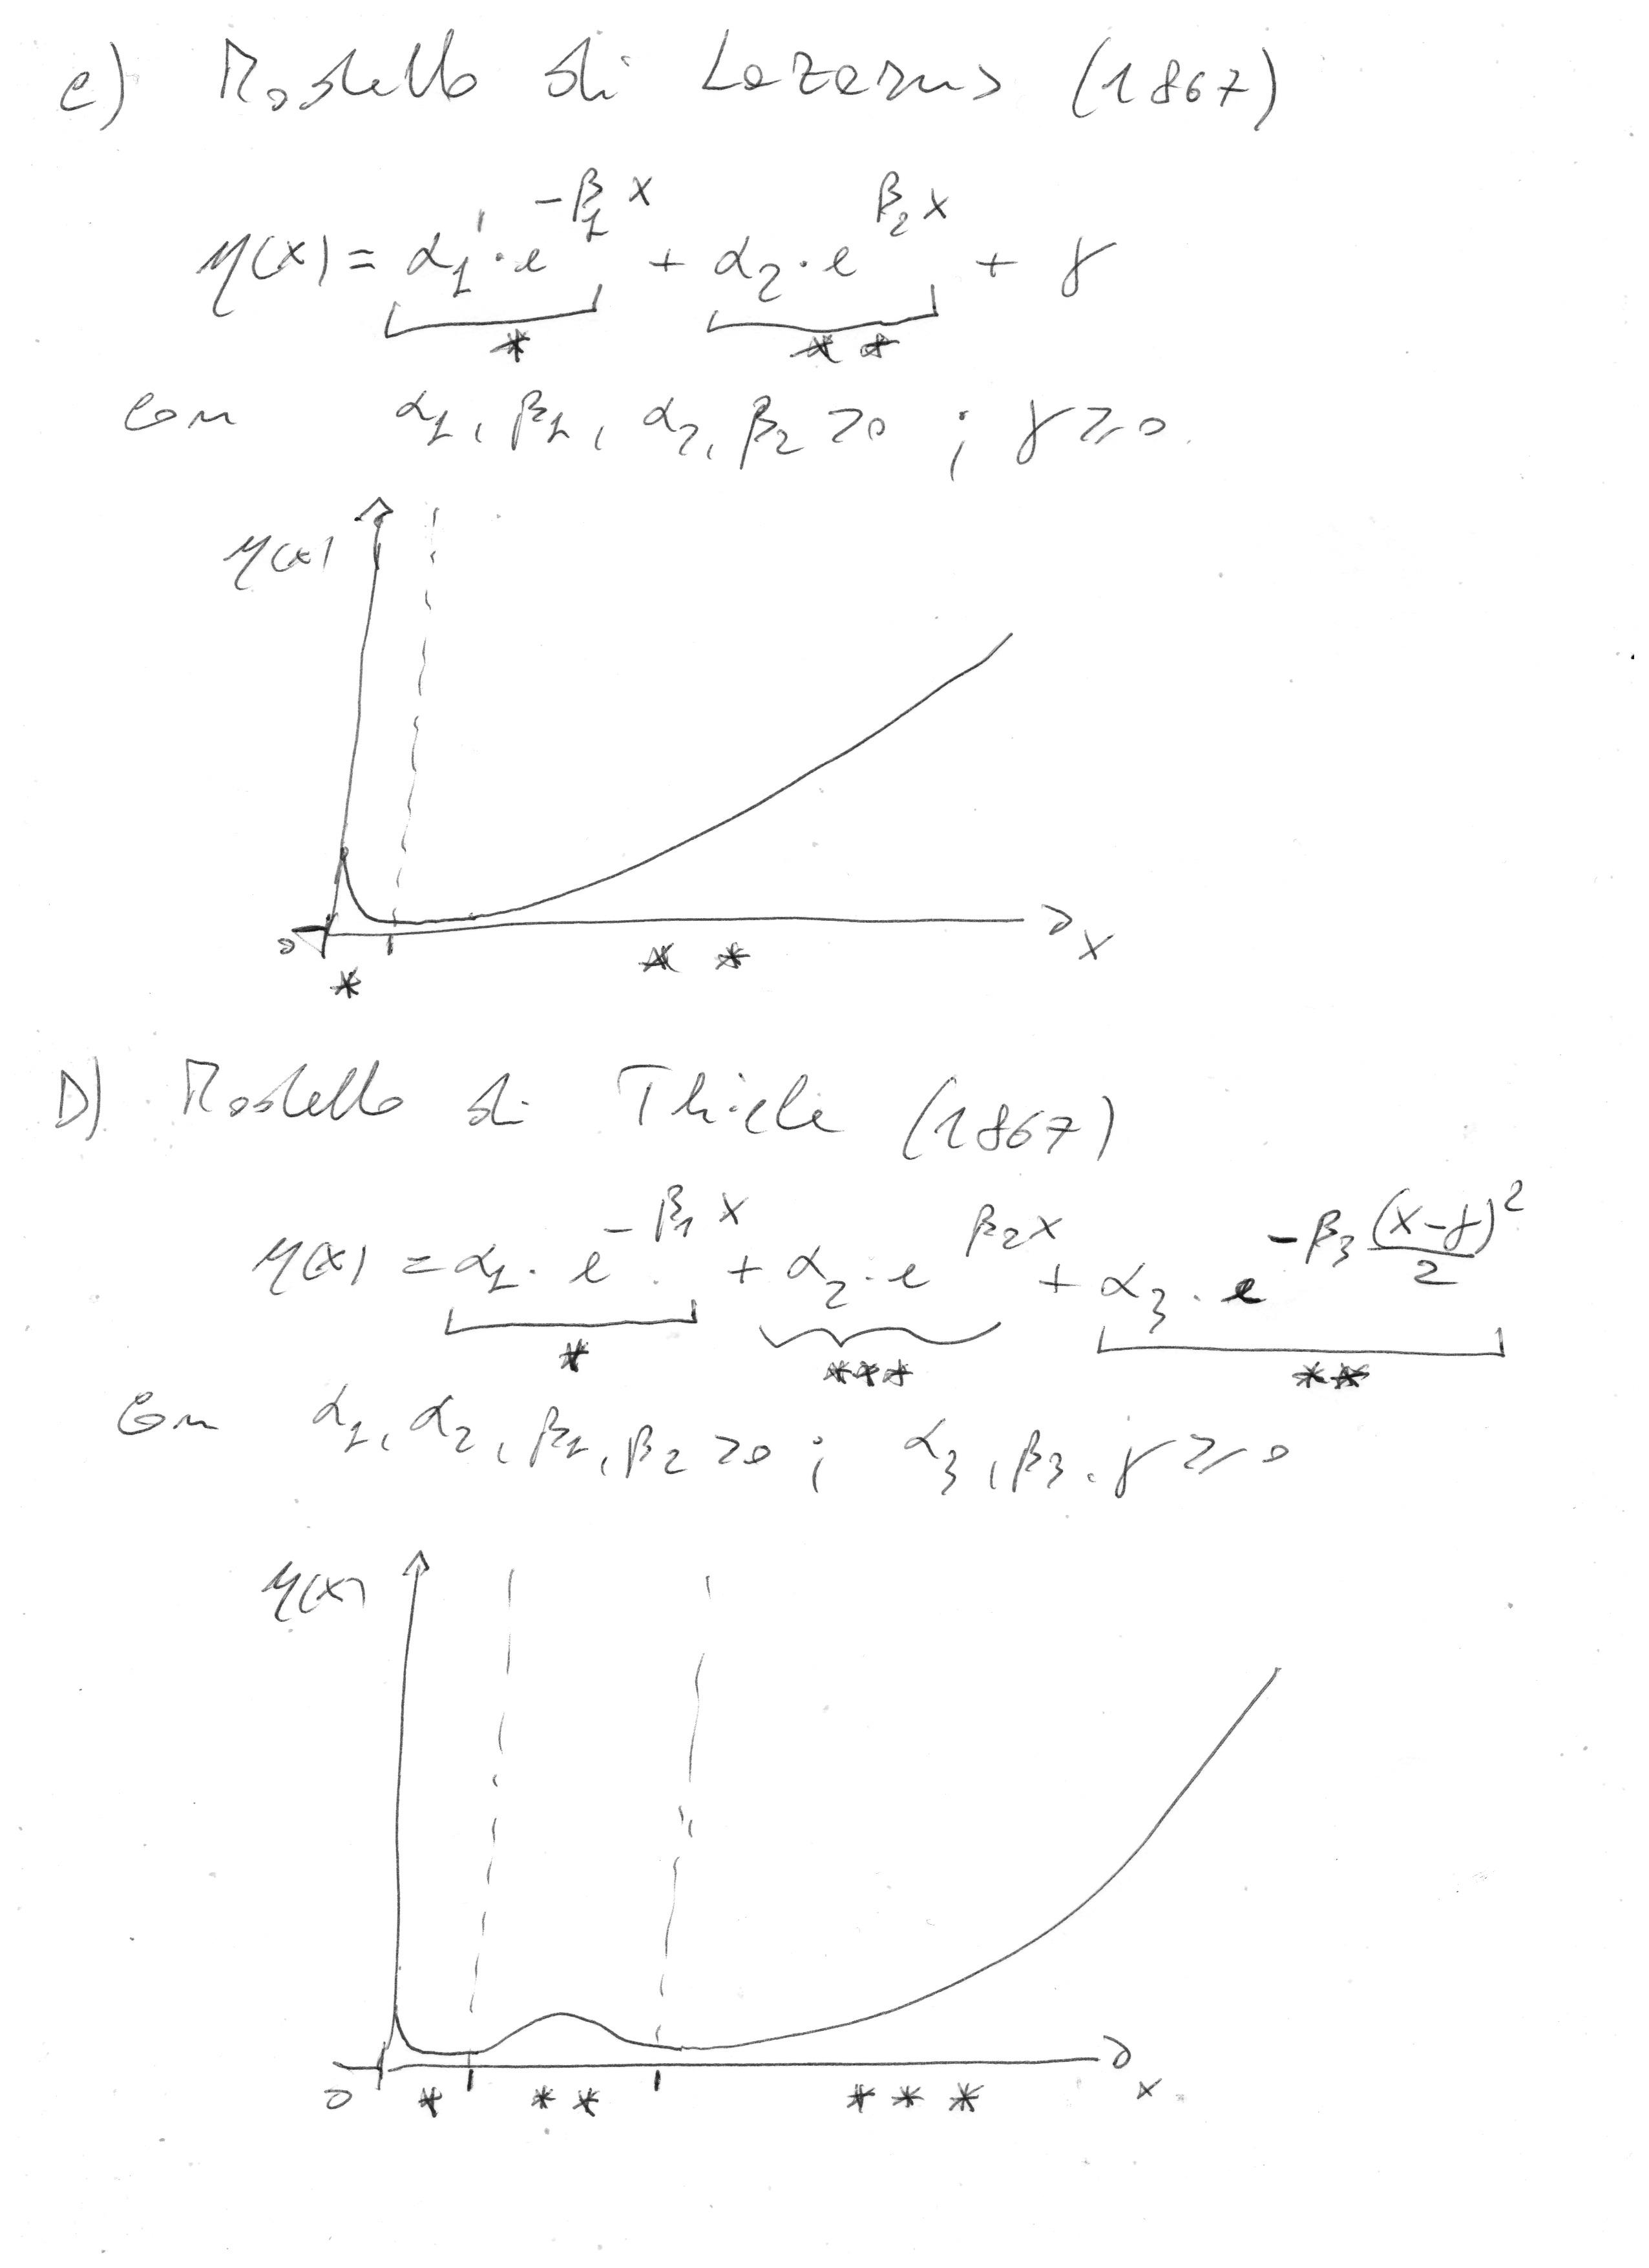 C) Modello di Lazarus (1867)
μ(x) = α₁ · e^(-β₁ x) + α₂ · e^(β₂ x) + γ
* **
con α₁, β₁, α₂, β₂ > 0 ; γ ≥ 0.
μ(x)
0 x
* **
D) Modello di Thiele (1867)
μ(x) = α₁ · e^(-β₁ x) + α₂ · e^(β₂ x) + α₃ · e^(-β₃ (x-γ)²/2)
* *** **
con α₁, α₂, β₁, β₂ > 0 ; α₃, β₃, γ ≥ 0
μ(x)
0 * ** *** x